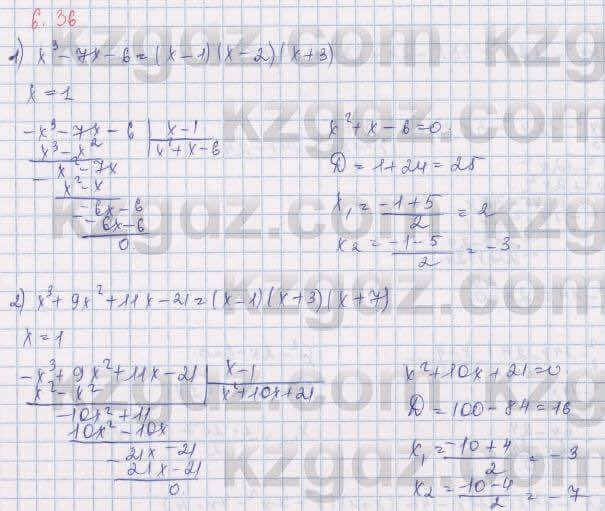 6.36
1) x³ - 7x - 6 = (x - 1)(x - 2)(x + 3)
x = 1
-x³ - 7x - 6 | x - 1
x³ - x² | x² + x - 6
- x² - 7x
x² - x
- -6x - 6
-6x - 6
0
x² + x - 6 = 0
D = 1 + 24 = 25
x₁ = (-1 + 5)/2 = 2
x₂ = (-1 - 5)/2 = -3
2) x³ + 9x² + 11x - 21 = (x - 1)(x + 3)(x + 7)
x = 1
-x³ + 9x² + 11x - 21 | x - 1
x² - x² | x² + 10x + 21
- 10x² + 11
10x² - 10x
- 21x - 21
21x - 21
0
x² + 10x + 21 = 0
D = 100 - 84 = 16
x₁ = (-10 + 4)/2 = -3
x₂ = (-10 - 4)/2 = -7
kzgdz.com